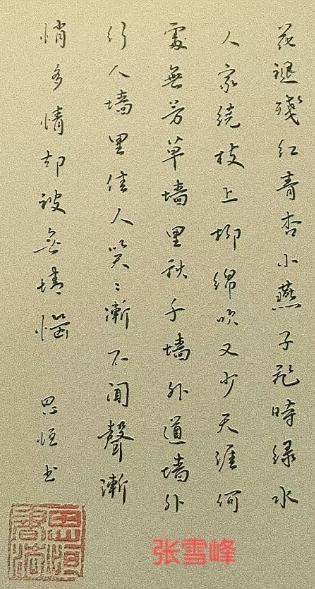 花褪殘红青杏小燕子飛時绿水
人家绕枝上柳绵吹又少天涯何
處無芳草墙里秋千墙外道墙外
行人墙里佳人笑〻漸不闻聲漸
悄多情却被無情惱 思恒书
张雪峰